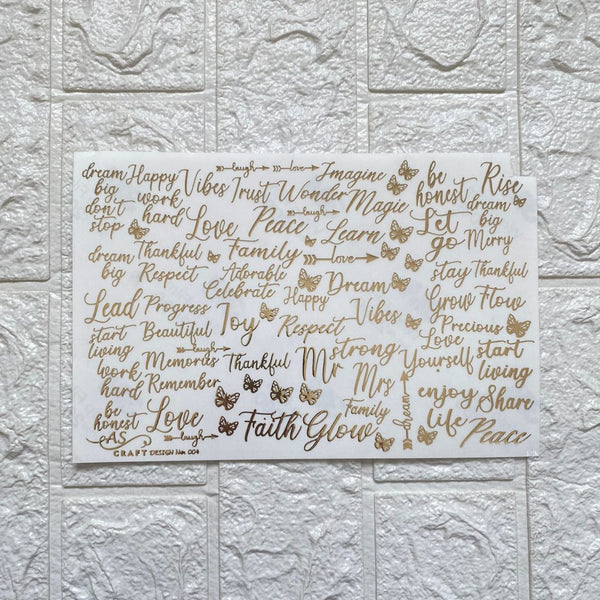 dream big don't stop
Happy
work hard
Vibes
laugh
love
Trust
Wonder
Imagine
Magic
be honest
Rise
dream big
Love
Peace
laugh
Learn
Let go
Merry
dream big
Thankful
Respect
Family
love
Adorable
Celebrate
Happy
Dream
stay
Thankful
Grow
Flow
Lead
Progress
Joy
Respect
Vibes
Precious
start living
Beautiful
laugh
Memories
Thankful
Mr
strong
Mrs
Love Yourself
start living
work hard
Remember
be honest
Love
laugh
Faith
Glow
Family
dream
enjoy life
Share
Peace
AS
CRAFT DESIGN No: 004